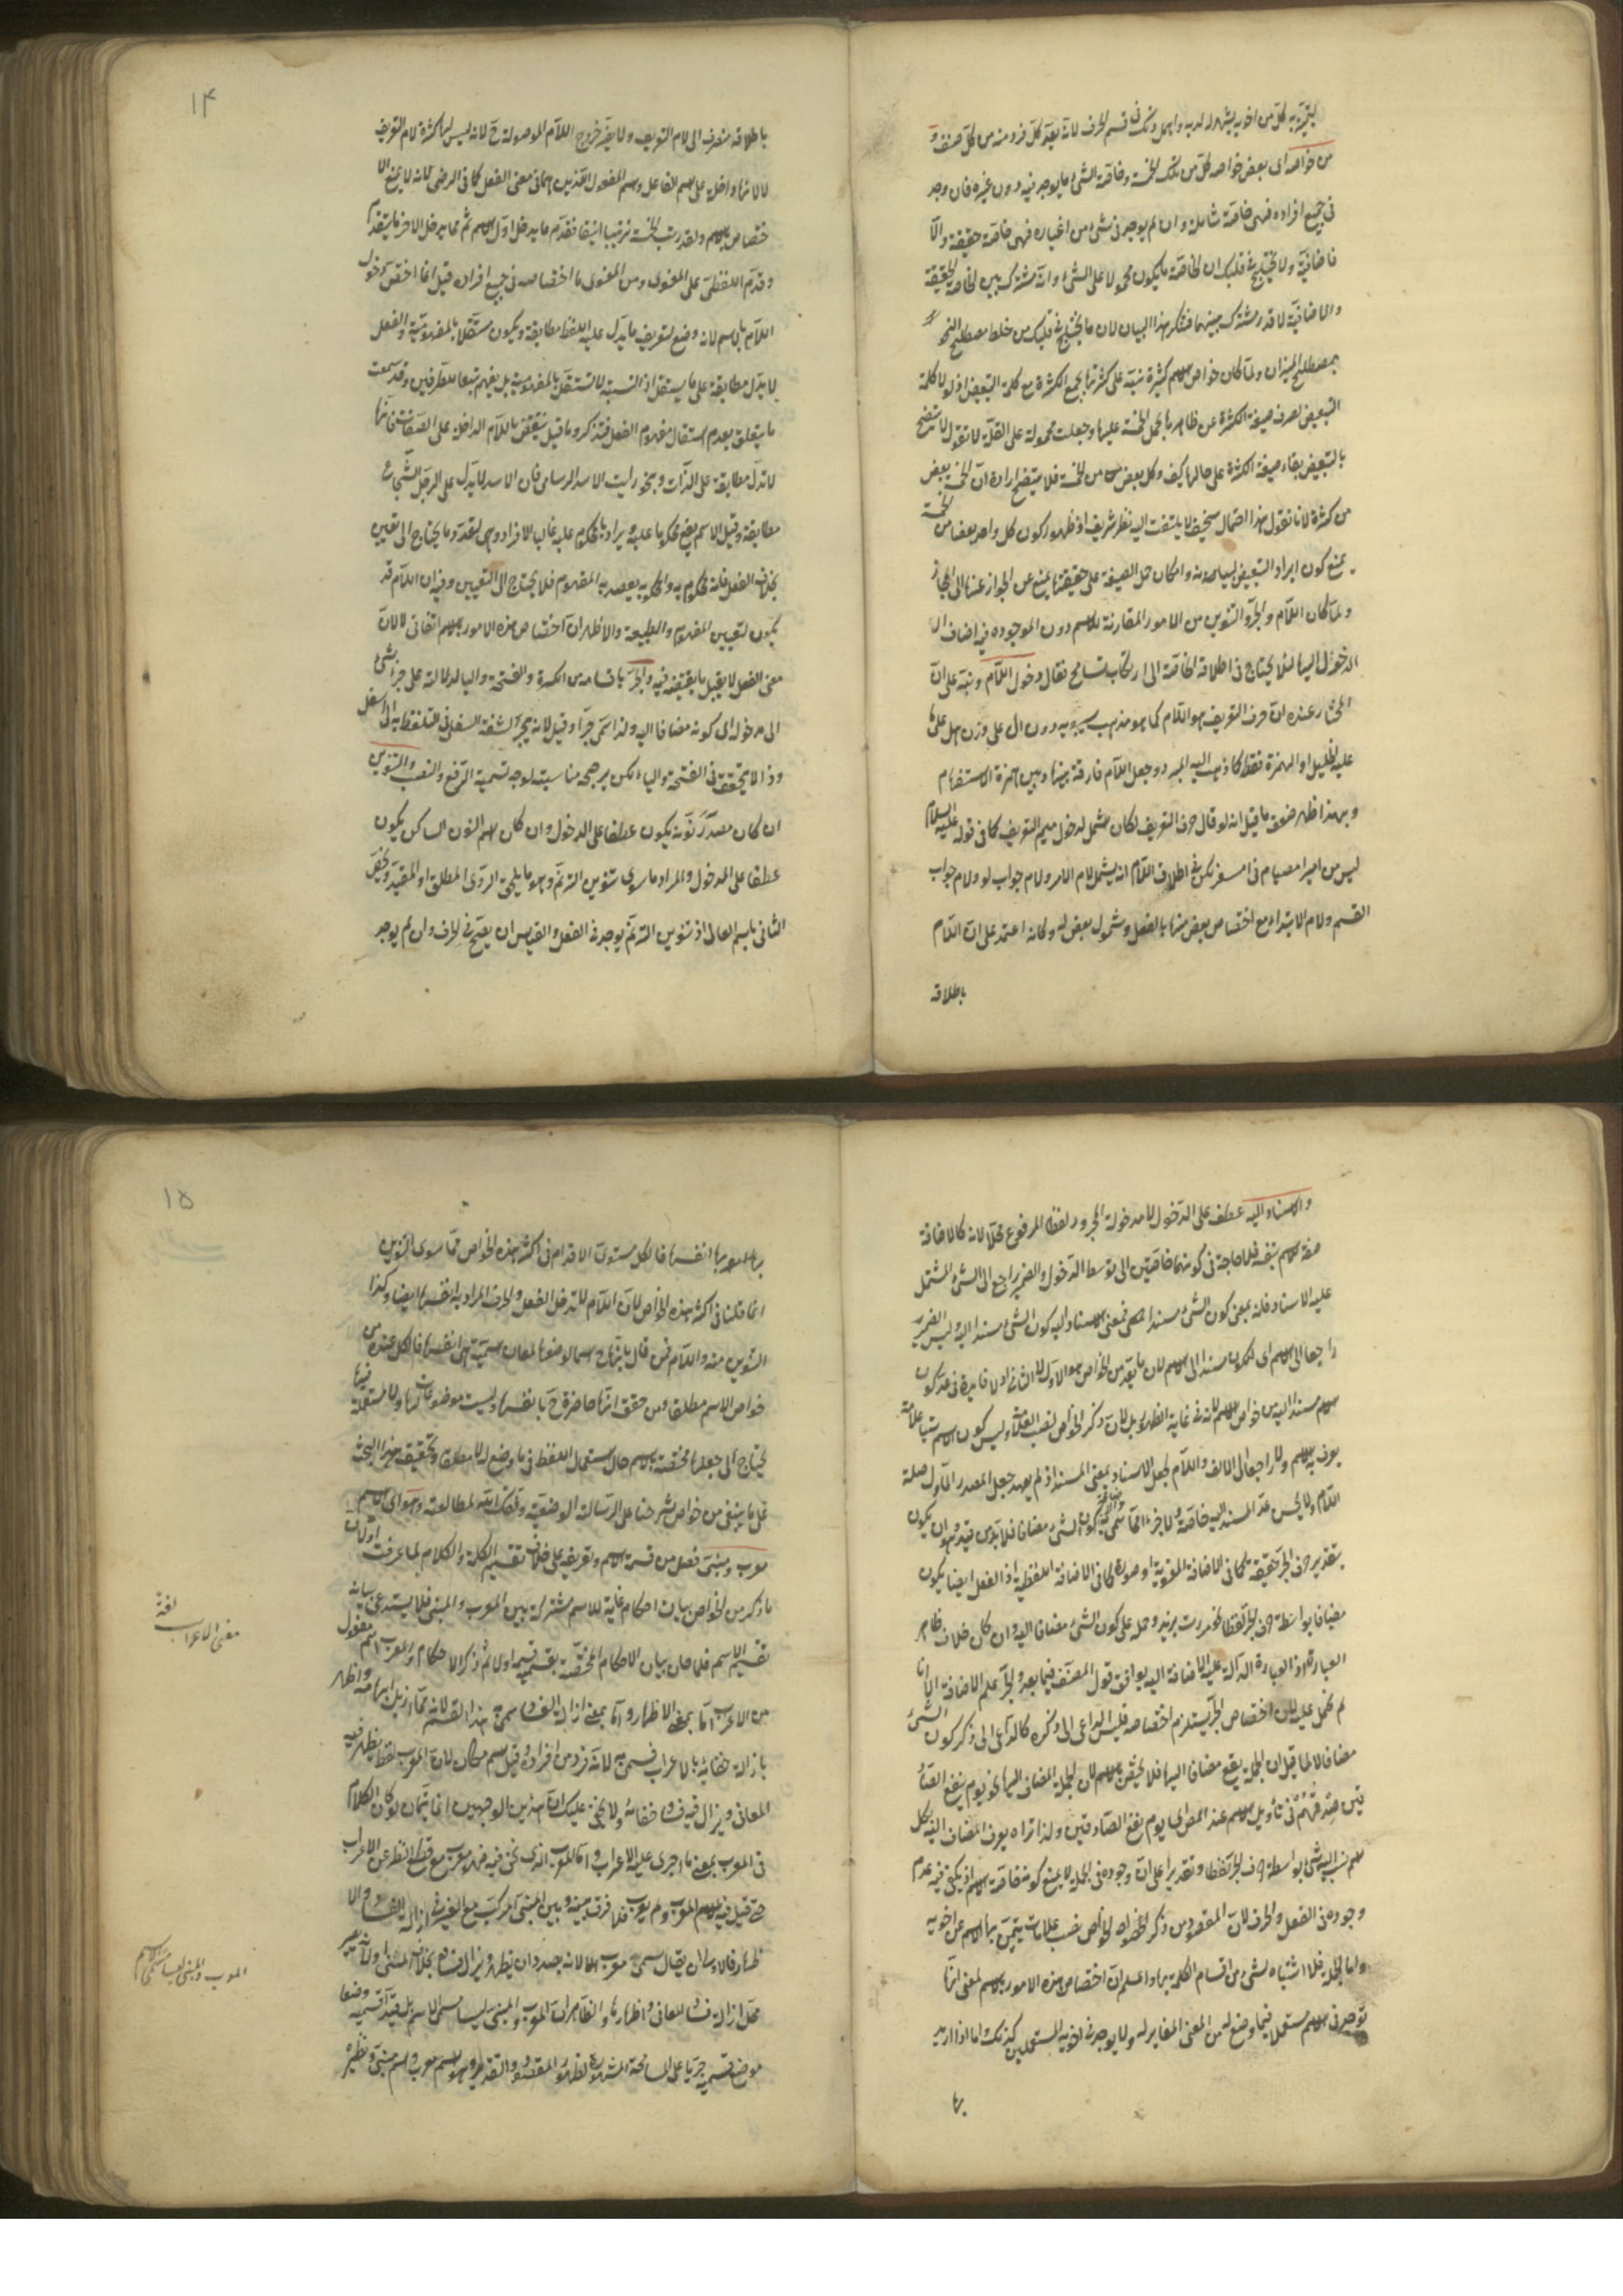 من خواصه اى بعض خواصه كل من تلك الخمسة وخاصة الشئ ما يوجد فيه دون غيره فان وجد
فى جميع افراده فهى خاصة شاملة وان لم يوجد فى شئ من اغياره فهى خاصة حقيقية والا
فاضافية ولا يختلج فى قلبك ان الخاصة ما يكون محمولا على الشئ وانه مشترك بين الخاصة الحقيقية
والاضافية لا قدر مشترك بينهما فتكرر هذا البيان لان ما يختلج فى قلبك من خلط مصطلح النحو
بمصطلح الميزان ولما كان خواص الاسم كثيرة نبه على كثرتها بجمع الكثرة مع كلمة التبعيض اذ لولا كلمة
التبعيض لصرف صيغة الكثرة عن ظاهرها بحمل الخمسة عليها وجعلت محمولة على القلة لا تقول لا يتضح
بالتبعيض بقاء صيغة الكثرة على حالها كيف وكل بعض من الخمسة فلا يتضح ارادة ان الخمسة بعض
من كثرة لانا نقول هذا احتمال سخيف لا يلتفت اليه نظر شريف اذ ظهور كون كل واحد بعضا من الخمسة
يمنع كون ايراد التبعيض لبيانه وامكان حمل الصيغة على حقيقتها يمنع عن الجواز عنها الى المجاز
ولما كان اللام والجر والتنوين من الامور المقارنة للاسم دون الموجودة فيه اضاف ال
الدخول اليها لئلا يحتاج فى اطلاق الخاصة الى ارتكاب تسامح فقال دخول اللام ونبه على ان
المختار عنده ان حرف التعريف هو اللام كما هو مذهب سيبويه دون ال على وزن هل على ما
عليه الخليل او الهمزة فقط كما ذهب اليه المبرد وجعل اللام فارقة بينها وبين همزة الاستفهام
وبهذا ظهر ضعف ما قيل انه لو قال حرف التعريف لكان شمل لدخول ميم التعريف كما فى قوله عليه السلام
ليس من امبر امصيام فى امسفر لكن فى اطلاق اللام انه يشمل لام الامر ولام جواب لو ولام جواب
القسم ولام الابتداء مع اختصاص بعض منها بالفعل وشمول بعض له وكانه اعتمد على ان اللام
باطلاقه
١٤
باطلاقه منصرف الى لام التعريف ولا يضر خروج اللام الموصولة ح لانه ليس لها كثرة لام التعريف
لالانها داخلة على اسم الفاعل واسم المفعول الذين هما فى معنى الفعل كما فى الرضى لانه لا يمنع الا
ختصاص بالاسم ولقد رتب الخمسة ترتيبا انيقا فقدم ما يدخل اول الاسم ثم ما يدخل الاخر
وقدم اللفظى على المعنوى ومن المعنوى ما اختصاصه فى جميع افراده قيل انما اختص دخول
اللام بالاسم لانه وضع لتعريف ما يدل عليه اللفظ مطابقة ويكون مستقلا بالمفهومية والفعل
لا يدل مطابقة على ما يستقل اذ النسبة لا تستقل بالمفهومية بل يفهم تبعا للطرفين وقد سمعت
ما يتعلق بعدم استقلال مفهوم الفعل فتذكر وما قيل ينتقض باللام الداخلة على الصفات فانها
لا تدل مطابقة على الذات وبنحو رايت الاسد الرامى فان الاسد لا يدل على الرجل الشجاع
مطابقة وقيل الاسم يقع محكوما عليه ويراد بالمحكوم عليه غالبا الافراد وهى متعددة وما يحتاج الى تعيين
بخلاف الفعل فانه محكوم به والمحكوم به يقصد به المفهوم فلا يحتاج الى التعيين وفيه ان اللام قد
يكون لتعيين المفهوم والطبيعة والاظهر ان اختصاص هذه الامور بالاسم اتفاقى لا لان
معنى الفعل لا يقبل ما يقتضيه فيه والجر باقسامه من الكسرة والفتحة والياء لدلالته على جر شئ
الى مدخوله اى كونه مضافا اليه ولذا سمى جرا وقيل لانه يجر الشفة السفلى فى التلفظ به الى اسفل
وذا لا يتحقق فى الفتحة والياء لكن يرجحه مناسبته لوجه تسمية الرفع والنصب والتنوين
ان كان مصدر نونه يكون عطفا على الدخول وان كان اسم النون الساكن يكون
عطفا على المدخول والمراد ما سوى تنوين الترنم وهو ما يلحق الروى المطلق او المقيد ويختص
الثانى باسم الغالى اذ تنوين الترنم يوجد فى الفعل والقياس ان يصح فى الحرف وان لم يوجد
والاسناد اليه عطف على الدخول لا مدخوله المجرور لفظا المرفوع محلا لانه كالاضافة
صفة الاسم بنفسه فلا حاجة فى كونهما خاصتين الى توسط الدخول والضمير راجع الى الشئ المشتمل
عليه الاسناد فانه بمعنى كون الشئ مسندا فمعنى الاسناد اليه كون الشئ مسندا اليه وليس الضمير
راجعا الى الاسم اى كون مسندا الى الاسم لان ما يعد من الخواص هو الاول لا الثانى ولا فايدة فى عد كون
الاسم مسندا اليه من خواص الاسم لانه فى غاية الظهور بل لان ذكر الخواص لنصب العلامة وليس كون الاسم علامة
يعرف به الاسم ولا راجعا الى الالف واللام لجعل الاسناد بمعنى المسند اذ لم يعهد جعل المصدر المأول صلة
اللام ولا يحسن عد المسند اليه خاصة كون الشئ مضافا فلا بد من قيد وهو ان يكون
بتقدير حرف الجر حقيقة كما فى الاضافة المعنوية او صورة كما فى الاضافة اللفظية اذ الفعل ايضا يكون
مضافا بواسطة حرف الجر لفظا نحو مررت بزيد وحمله على كون الشئ مضافا اليه وان كان خلاف ظاهر
العبارة اذ العبارة الدالة عليه الاضافة اليه يوافق قول المصنف فيما بعد والجر علم الاضافة الا انا
لم نحمل عليه لان اختصاص الجر يستلزم اختصاصه فليس الداعى الى ذكره كالداعى الى ذكر كون الشئ
مضافا لا لما قيل ان الجملة يقع مضافا اليها فلا يختص بالاسم لان الجملة المضاف اليها نحو يوم ينفع الصاد
قين صدقهم فى تأويل الاسم عند المص اى يوم نفع الصادقين ولذا تراه يعرف المضاف اليه بكل
اسم نسب اليه شئ بواسطة حرف الجر لفظا وتقديرا على ان وجوده فى الجملة لا يمنع كونه خاصة الاسم اذ يكفى فيه عدم
وجوده فى الفعل والحرف لان المقصود من ذكر الخواص نصب علامات يتميز بها الاسم عن اخويه
واما الجملة فلا اشتباه لشئ من اقسام الكلمة بها واعلم ان اختصاص هذه الامور بالاسم لمعنى انها
توجد فى الاسم مستعملا فيما وضع له من المعنى المغاير له ولا يوجد فى اخويه المستعملين كذلك واما اذا اريد
بها
١٥
بها انفسها فالكل مستوى الاقدام فى اكثر هذه الخواص مما سوى التنوين
انما قلنا فى اكثر هذه الخواص لان اللام لا تدخل الفعل والحرف المراد به انفسها ايضا وكذا
التنوين منه واللام فمن قال بانها ح اسماء وضعوا لمعان سمية هى انفسها فالكل عنده من
خواص الاسم مطلقا ومن حقق انها حاضرة ح بانفسها وليست موضوعات لها ولا مستعملة فيها
يحتاج الى جعلها مختصة بالاسم حال استعمال اللفظ فى ما وضع له لا مطلقا وتحقيق هذا البحث
على ما ينبغى من خواص شرحنا على الرسالة الوضعية وفقك الله لمطالعته وهو اى الاسم
معرب ومبنى فصل من قسمة الاسم وتعريفه على خلاف تقسيم الكلمة والكلام لما عرفت
ما ذكر من الخواص بيان احكام عامة للاسم مشتركة بين المعرب والمبنى فلا يستدعى بيانه
تقسيم الاسم فلما حان بيان الاحكام المختصة بقسم قسمه اولا ثم ذكر الاحكام والمعرب اسم مفعول
من الاعراب اما بمعنى الاظهار واما بمعنى ازالة الفساد سمى هذا القسم لانه مما ازيل ابهامه واظهر
بازالة خفائه بالاعراب فسمى به لانه فرد من افراده وقيل اسم مكان لان المعرب لفظ يظهر فيه
المعانى ويزال فيه فساد خفائه ولا يخفى عليك ان هذين الوجهين انما يتمان لو كان الكلام
فى المعرب بمعنى ما اجرى عليه الاعراب واما المعرب الذى نحن فيه فهو معرب مع قطع النظر عن الاعراب
حتى قيل فيه الاسم المعرب ولم يعرب فلا فرق بينه وبين المبنى المركب مع الغير فى ازالة الفساد والا
ظهار فالاولى ان يقال سمى معربا لانه بصدد ان يظهر ويزال فساده بخلاف المبنى
محل ازالة فساد المعانى واظهارها والظاهر ان المعرب والمبنى ليسا اسمى الاسم بل قيد اقسميه وضعا
موضع قسميه جريا على المسامحة المشهورة لظهور المقصود والتقدير وهو اسم معرب واسم مبنى ونظيره
معنى الاعراب لغة
المعرب والمبنى ليسا اسمى الاسم